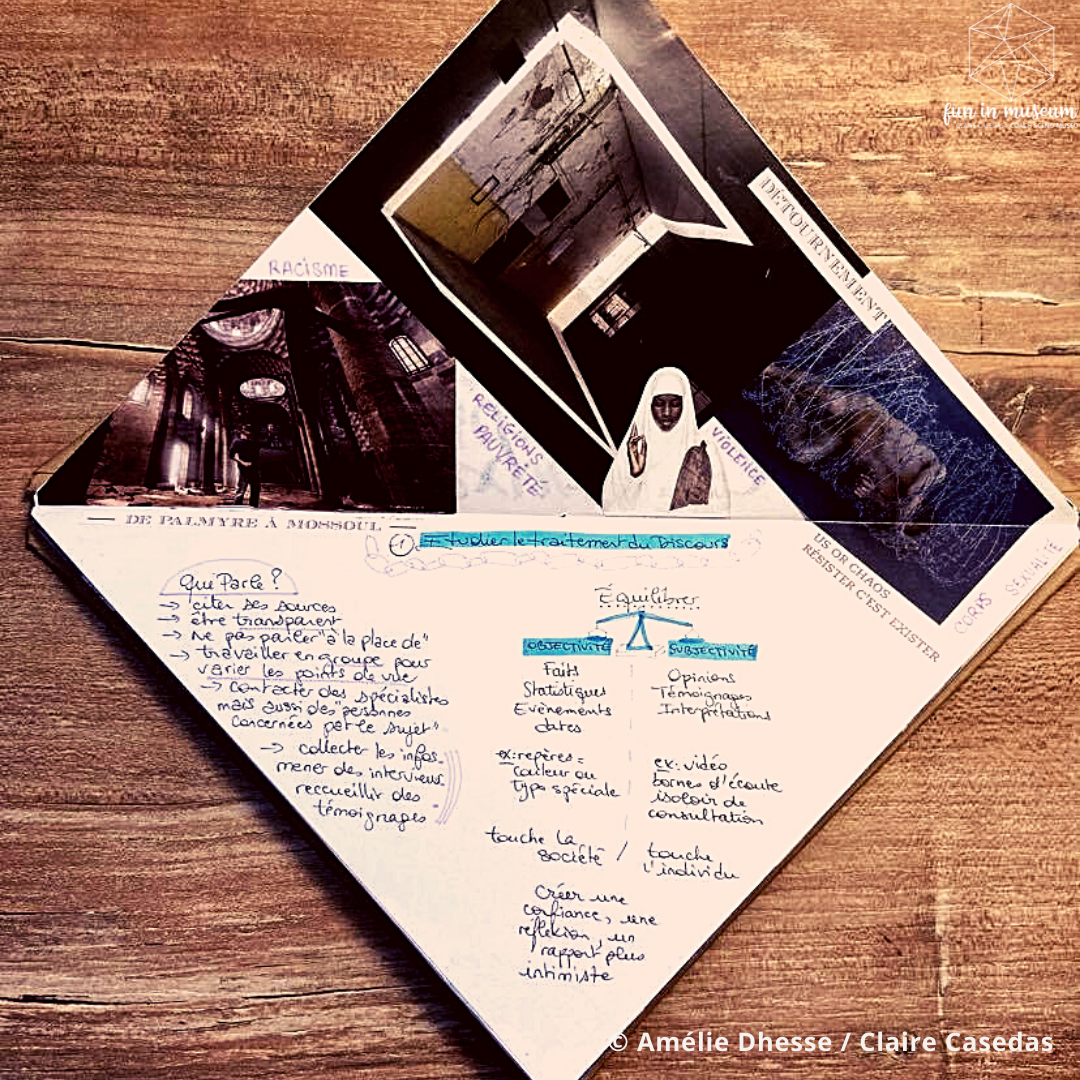 fun in museum
DÉTOURNEMENT
RACISME
RELIGIONS
PAUVRETÉ
VIOLENCE
DE PALMYRE À MOSSOUL
US OR CHAOS
RÉSISTER C'EST EXISTER
CORPS SEXUALITÉ
① Etudier le traitement du Discours
Qui Parle?
→ citer ses sources
→ être transparent
→ ne pas parler "à la place de"
→ travailler en groupe pour
varier les points de vue
→ contacter des spécialistes
mais aussi des "personnes
concernées par le sujet"
→ collecter les infos
mener des interviews
reccueillir des
témoignages
Équilibrer
OBJECTIVITÉ
Faits
Statistiques
Evènements
dates
ex: repères =
couleur ou
typo spéciale
touche la
société /
SUBJECTIVITÉ
Opinions
Témoignages
Interprétations
ex: vidéo
bornes d'écoute
isoloir de
consultation
touche
l'individu
Créer une
confiance, une
réflexion, un
rapport plus
intimiste
© Amélie Dhesse / Claire Casedas